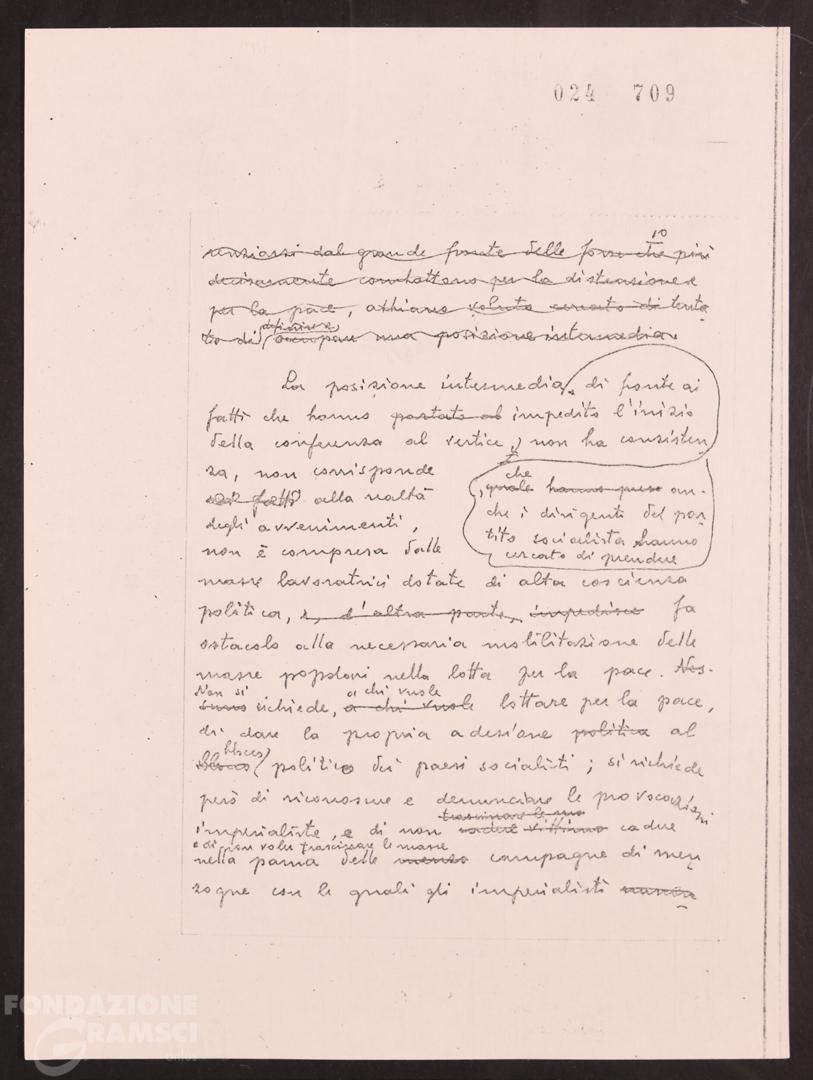 024 709
10
dal grande fronte delle forze che più
decisamente combattono per la distensione e
per la pace, abbiano voluto cercato di tenta
to di definire occupare una posizione intermedia.
La posizione intermedia, di fronte ai
fatti che hanno portato al impedito l'inizio
della conferenza al vertice, non ha consisten
za, non corrisponde
ai fatti alla realtà
degli avvenimenti,
non è compresa dalle
, che quale hanno preso an-
che i dirigenti del par
tito socialista hanno
cercato di prendere
masse lavoratrici dotate di alta coscienza
politica, e, d'altra parte, impedisce fa
ostacolo alla necessaria mobilitazione delle
masse popolari nella lotta per la pace. Nes-
Non si a chi vuole
suno richiede, a chi vuole lottare per la pace,
di dare la propria adesione politica al
blocco
blocco politico dei paesi socialisti; si richiede
però di riconoscere e denunciare le provocazioni
trascinare le sue
imperialiste, e di non cadere vittime cadere
e di non voler trascinare le masse
nella pania delle menzo campagne di men
zogne con le quali gli imperialisti